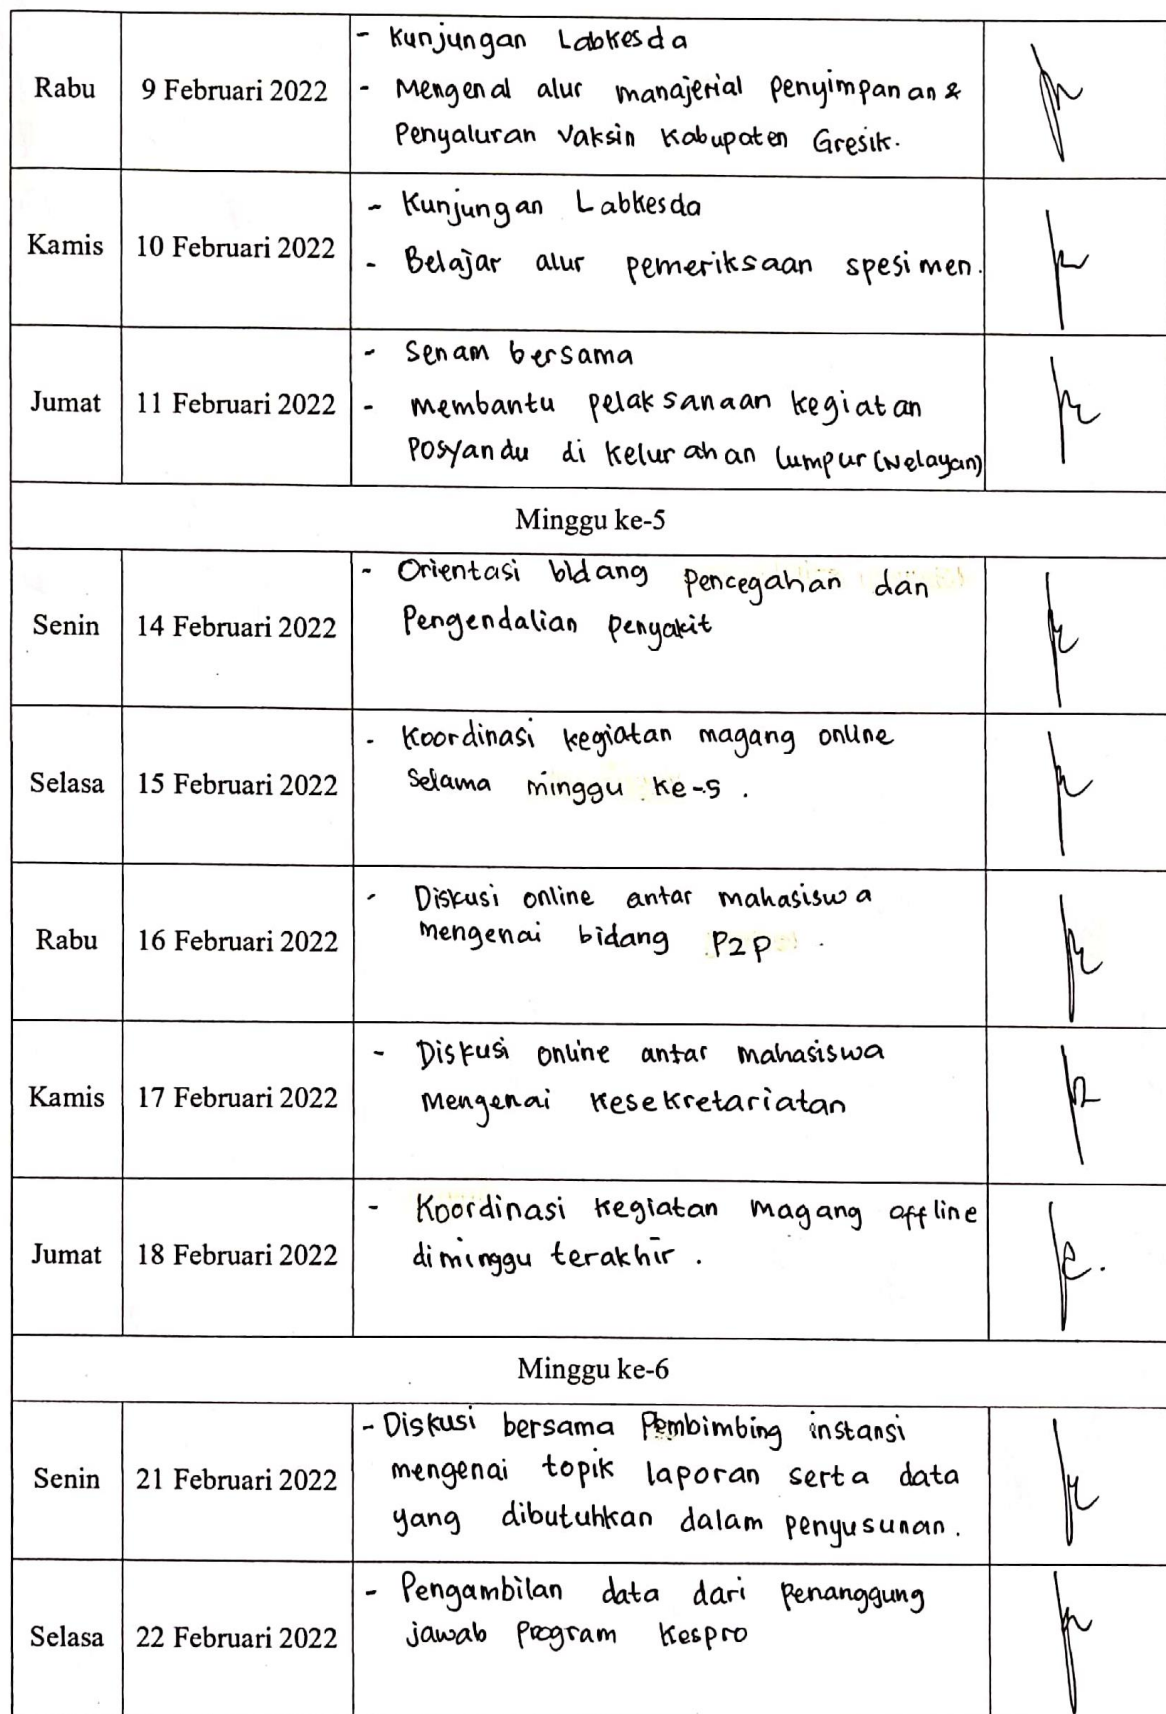 Rabu
9 Februari 2022
- Kunjungan Labkesda
- Mengenal alur manajerial Penyimpanan &
Penyaluran Vaksin Kabupaten Gresik.
Kamis
10 Februari 2022
- Kunjungan Labkesda
- Belajar alur pemeriksaan spesimen.
Jumat
11 Februari 2022
- Senam bersama
- membantu pelaksanaan kegiatan
Posyandu di Kelurahan Lumpur (Nelayan)
Minggu ke-5
Senin
14 Februari 2022
- Orientasi bidang Pencegahan dan
Pengendalian penyakit
Selasa
15 Februari 2022
- Koordinasi kegiatan magang online
Selama minggu ke-5.
Rabu
16 Februari 2022
- Diskusi online antar mahasiswa
mengenai bidang P2P.
Kamis
17 Februari 2022
- Diskusi online antar mahasiswa
Mengenai Kesekretariatan
Jumat
18 Februari 2022
- Koordinasi kegiatan magang offline
diminggu terakhir.
Minggu ke-6
Senin
21 Februari 2022
- Diskusi bersama Pembimbing instansi
mengenai topik laporan serta data
yang dibutuhkan dalam penyusunan.
Selasa
22 Februari 2022
- Pengambilan data dari Penanggung
jawab Program Kespro